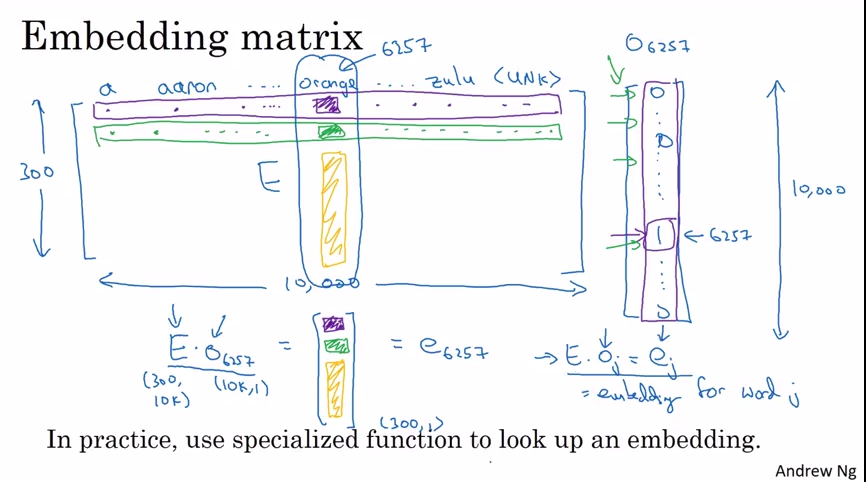 Embedding matrix
6257
O6257
a aaron .... orange .... zulu <UNK>
300
E
10,000
0
0
1
← 6257
0
10,000
E · O6257 = = e6257
(300, 10K) (10K,1)
(300,1)
→ E · Oj = ej
= embedding for word j
In practice, use specialized function to look up an embedding.
Andrew Ng